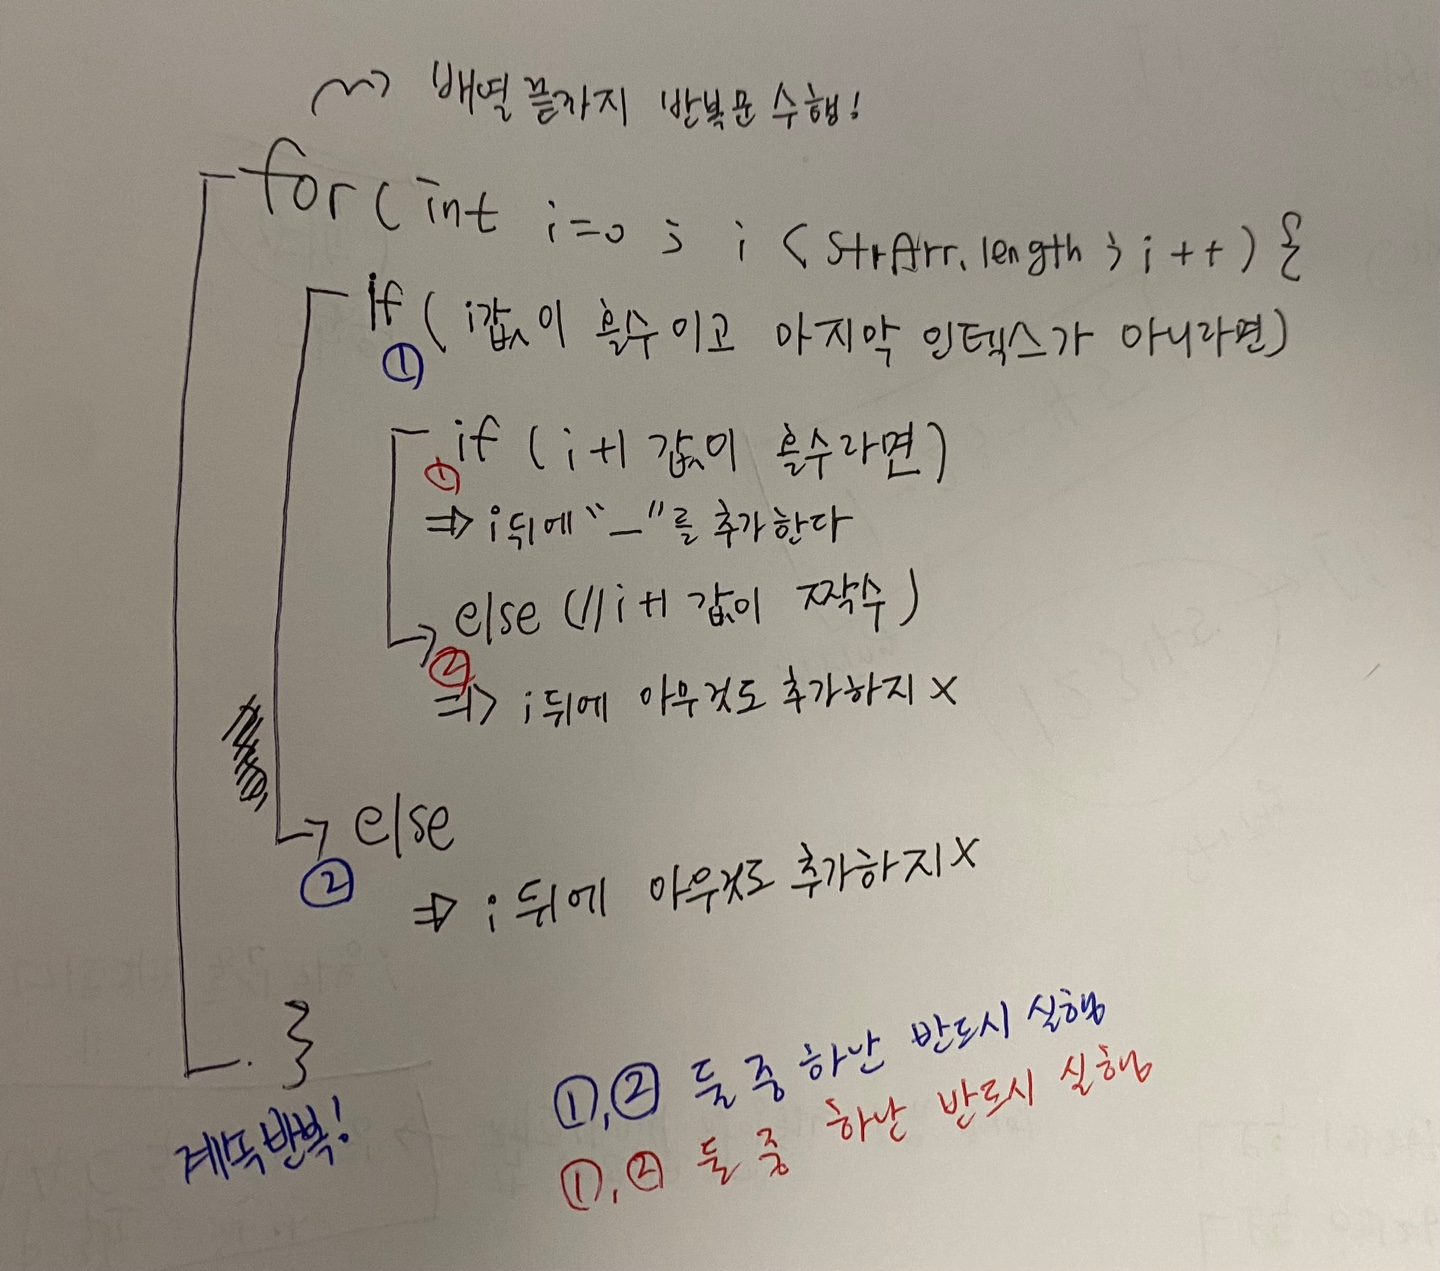 ~> 배열 끝까지 반복문 수행!
for ( int i=0 ; i < StrArr.length ; i++ ) {
if ( i값이 홀수이고 마지막 인덱스가 아니라면)
①
if ( i+1 값이 홀수라면)
①
⇒ i뒤에 "—"를 추가한다
else (// i+1 값이 짝수)
②
⇒ i뒤에 아무것도 추가하지 X
else
②
⇒ i 뒤에 아무것도 추가하지 X
}
계속반복!
①, ② 둘 중 하난 반드시 실행
①, ② 둘 중 하난 반드시 실행